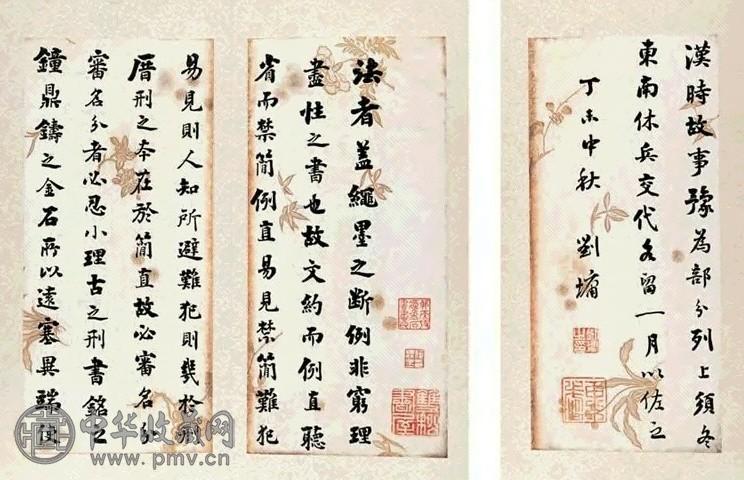 法者蓋繩墨之斷例非窮理
盡性之書也故文約而例直聽
省而禁簡例直易見禁簡難犯
易見則人知所避難犯則幾於刑
厝刑之本在於簡直故必審名分
審名分者必忍小理古之刑書銘之
鐘鼎鑄之金石所以遠塞異端使
漢時故事豫為部分列上須冬
東南休兵交代各留一月以佐之
丁未中秋 劉墉
中华收藏网
www.pmv.cn